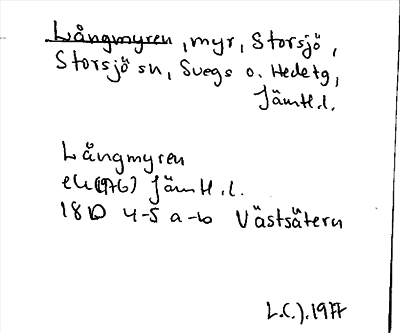 Långmyren, myr, Storsjö,
Storsjö sn, Svegs o. Hede tg,
Jämtl.l.
Långmyren
ek(1976) Jämtl.l.
18D 4-5 a-b Västsätern
L.C.J. 1977